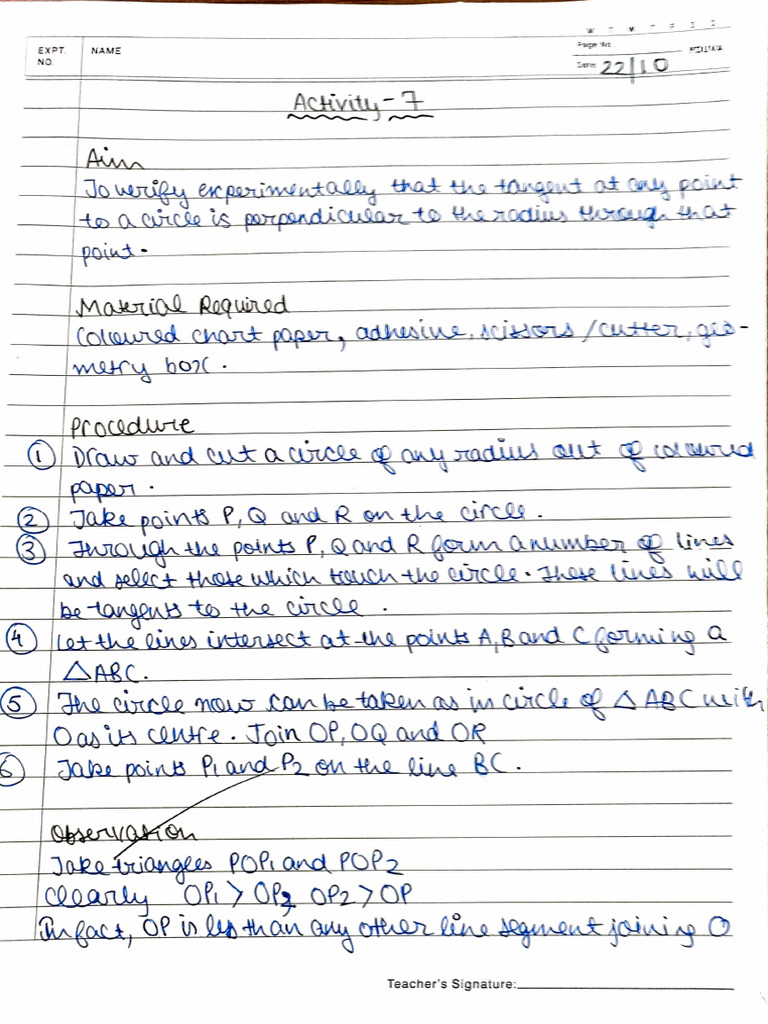 EXPT. NAME
NO.
Page No.
Date 22/10
Activity - 7
Aim
To verify experimentally that the tangent at any point
to a circle is perpendicular to the radius through that
point.
Material Required
Coloured chart paper, adhesine, scissors / cutter, geo-
metry box.
Procedure
① Draw and cut a circle of any radius out of coloured
paper.
② Take points P, Q and R on the circle.
③ Through the points P, Q and R form a number of lines
and select those which touch the circle. These lines will
be tangents to the circle.
④ Let the lines intersect at the points A, B and C forming a
△ABC.
⑤ The circle now can be taken as in circle of △ABC with
O as its centre. Join OP, OQ and OR
⑥ Take points P1 and P2 on the line BC.
Observation
Take triangles POP1 and POP2
Clearly OP1 > OP, OP2 > OP
In fact, OP is less than any other line segment joining O
Teacher's Signature: